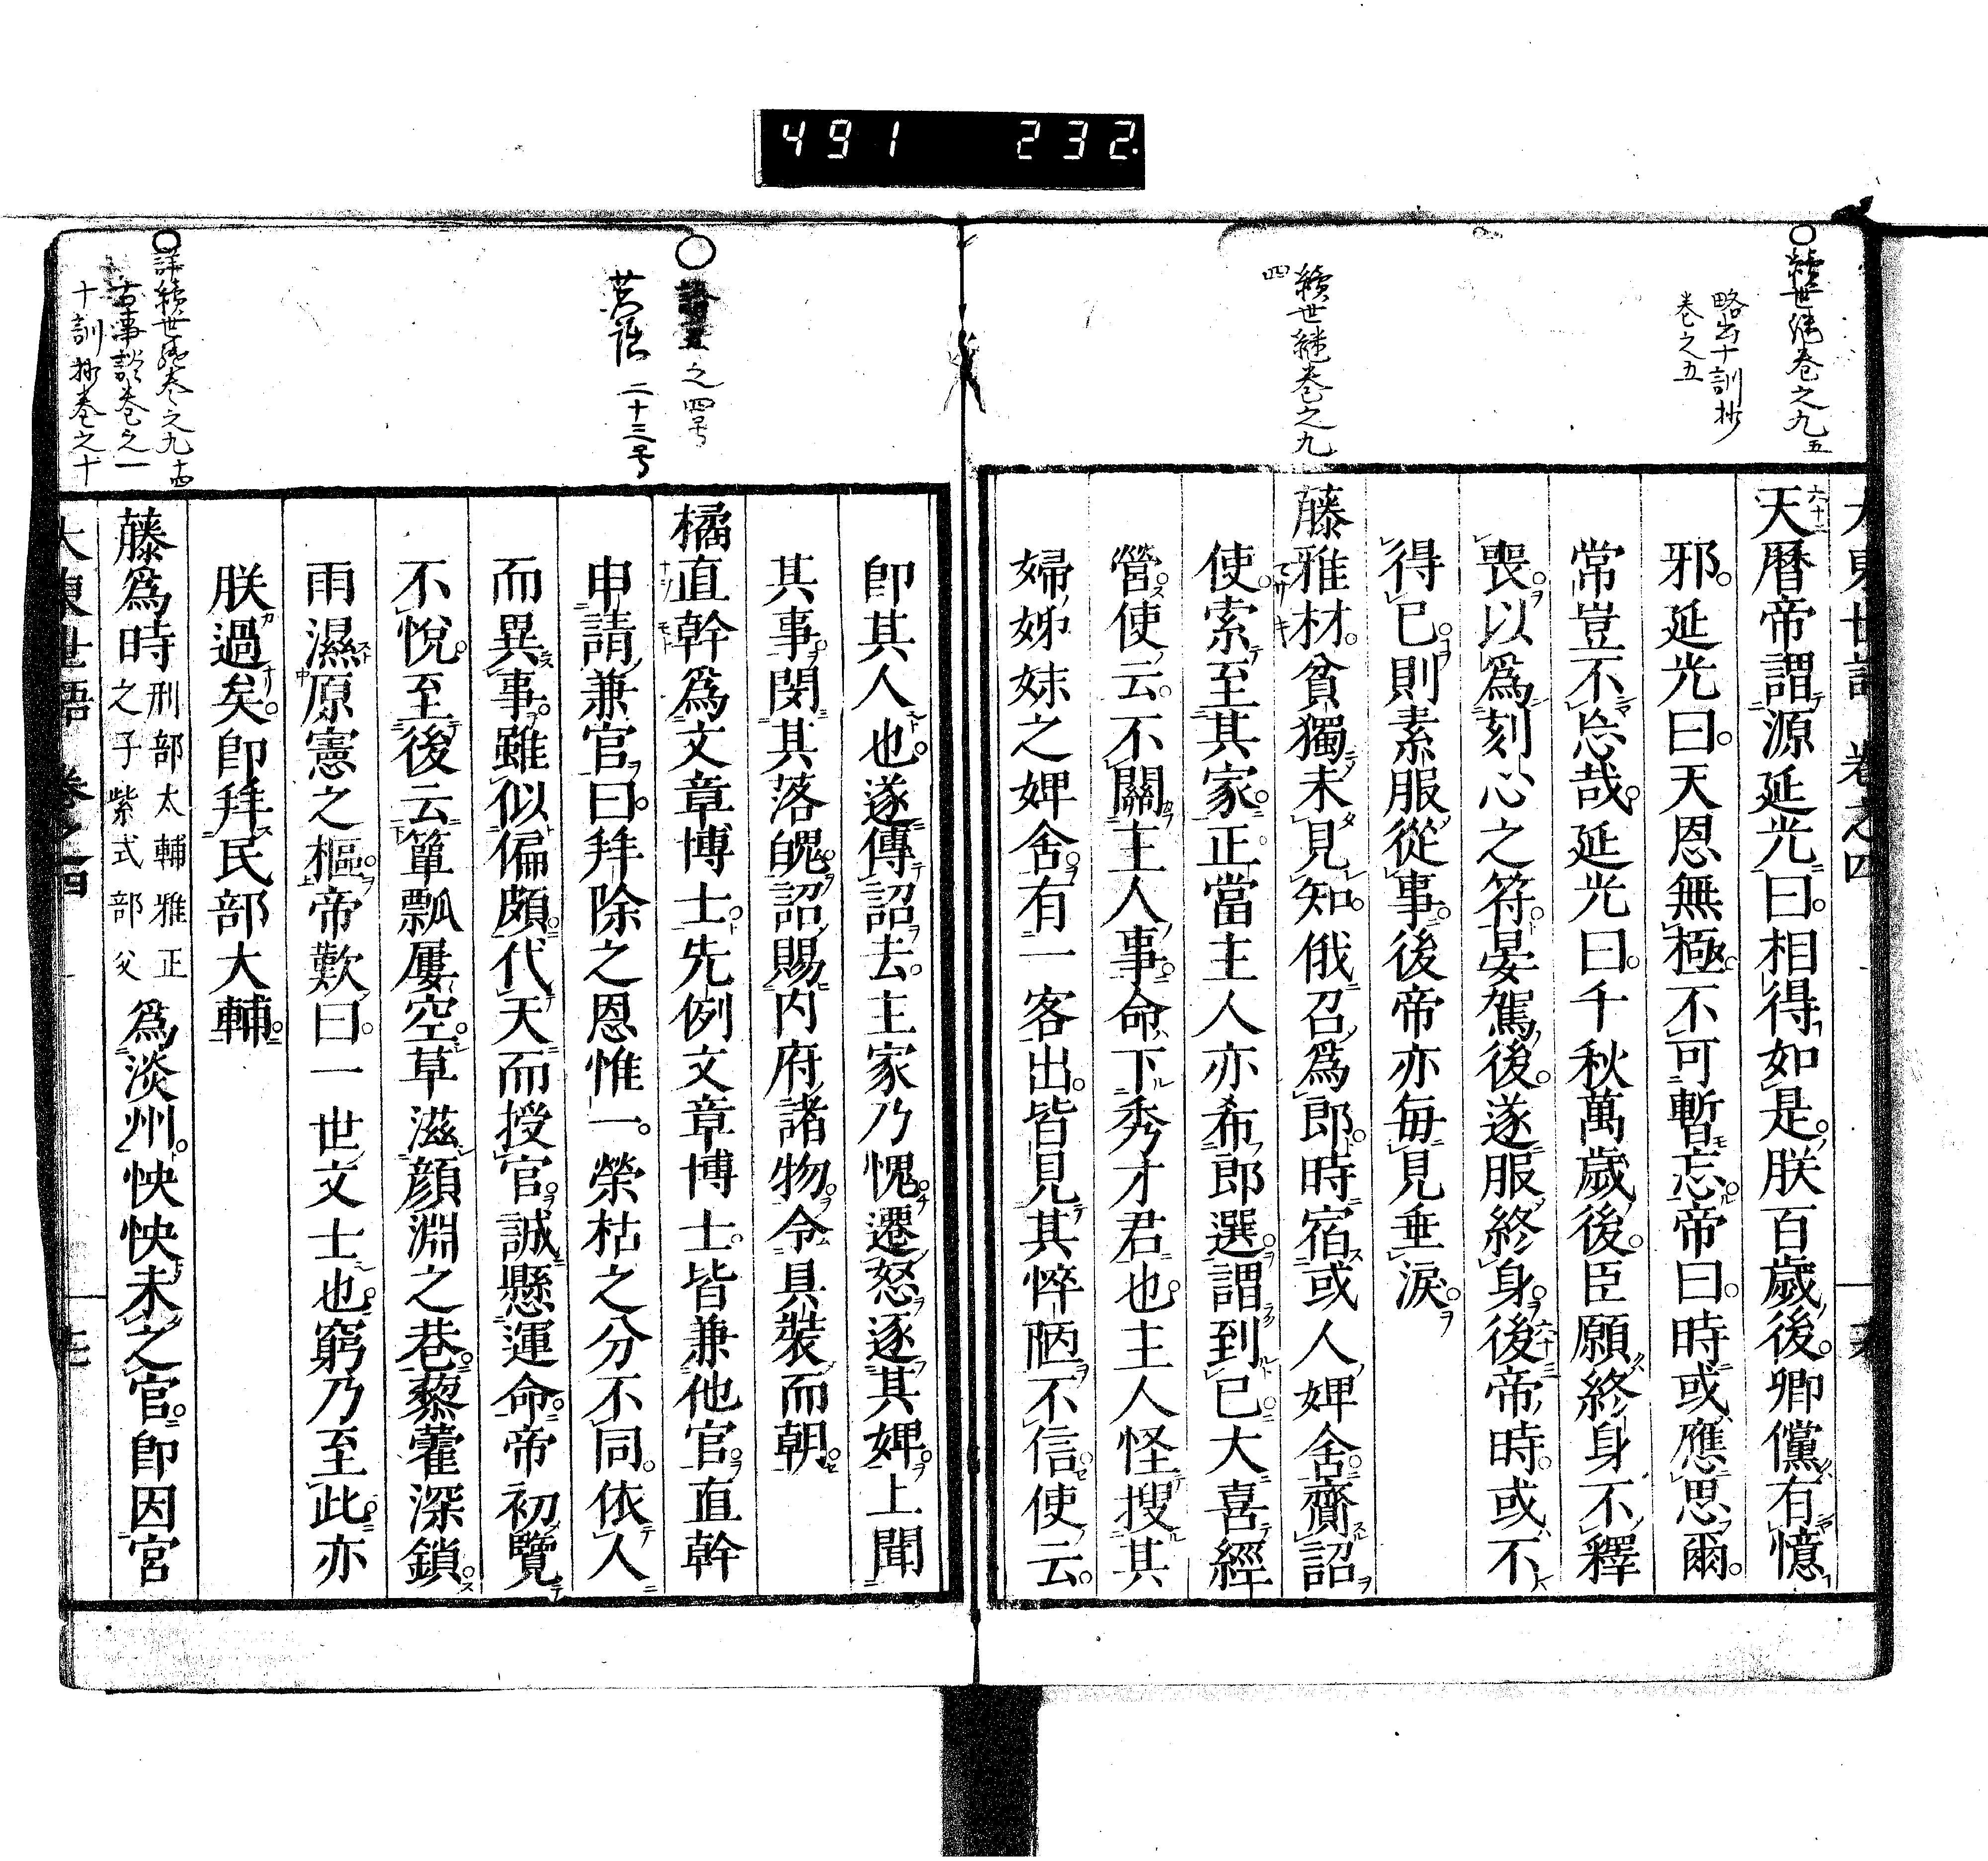 491 232.
○續世継卷之九 五
略出十訓抄
卷之五
續世継卷之九
四
大東世語 卷之四
天暦帝謂源延光曰相得如是朕百歲後卿儻有憶
邪延光曰天恩無極不可暫忘帝曰時或應思爾
常豈不忘哉延光曰千秋萬歲後臣願終身不釋
喪以爲刻心之符晏駕後遂服終身後帝時或不
得已則素服從事後帝亦每見垂淚
藤雅材貧獨未見知俄召爲郎時宿或人婢舍齎詔
使索至其家正當主人亦希郎選謂到已大喜經
營使云不關主人事命下秀才君也主人怪搜其
婦姊妹之婢舍有一客出皆見其悴陋不信使云
○之四号
二十三号
卽其人也遂傳詔去主家乃愧遷怒逐其婢上聞
其事閔其落魄詔賜內府諸物令具裝而朝
橘直幹爲文章博士先例文章博士皆兼他官直幹
申請兼官曰拜除之恩惟一榮枯之分不同依人
而異事雖似偏頗代天而授官誠懸運命帝初覽
不悅至後云簞瓢屢空草滋顏淵之巷藜藿深鎖
雨濕原憲之樞帝歎曰一世文士也窮乃至此亦
朕過矣卽拜民部大輔
○詳續世継卷之九 十四
古事談卷之一
十訓抄卷之十
藤爲時刑部太輔雅正之子紫式部父爲淡州怏怏未之官卽因宮
大東世語 卷之四